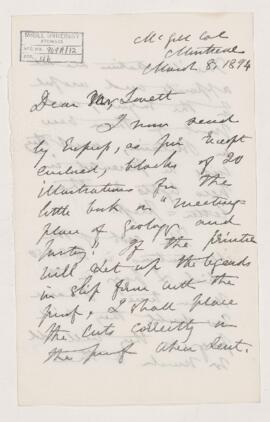 McGILL UNIVERSITY
ARCHIVES
ACC. NO.
McGill Col
Montreal
March 8, 1894
Dear Mr Lovett
I now send
by Express, as per
enclosed, blocks of 20
illustrations for the
little book on "meeting
place of Geology and
History." If the printer
will set up the legends
in slip form with the
proof, I shall place
the cuts correctly in
the proof when sent.